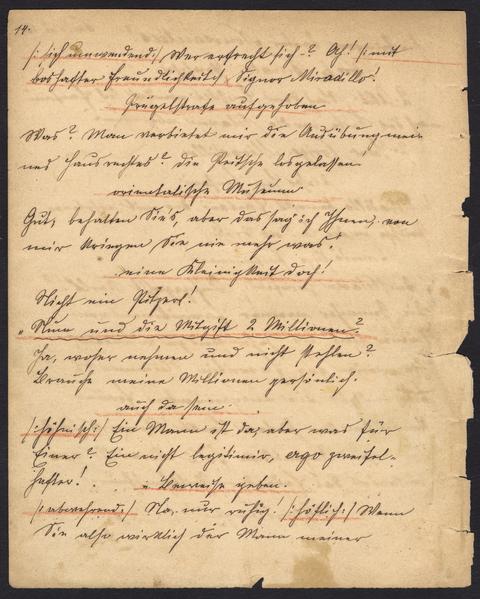 14.
/: sich umwendend :/ Wer erfrecht sich? Ah! /: mit
boshafter Freundlichkeit :/ Signor Miradillo!
Prügelstrafe aufgehoben
Was? Man verbietet mir die Ausübung mei-
nes Hausrechtes? die Peitsche losgelassen!
orientalische Museum
Gut, behalten Sie's, aber das sag' ich Ihnen, von
mir kriegen Sie nie mehr was!
eine Kleinigkeit doch!
Nicht ein Pitzerl!
"Nun und die Mitgift 2 Millionen?
Ja, woher nehmen und nicht stehlen?
Brauche meine Millionen persönlich.
auch da sein.
/: höhnisch :/ Ein Mann ist da, aber was für
Einer? Ein nicht legitimir, ergo zweifel-
hafter! . . " Beweise geben.
/: abwehrend :/ Na, nur ruhig! /: höflich :/ Wenn
Sie also wirklich der Mann meiner